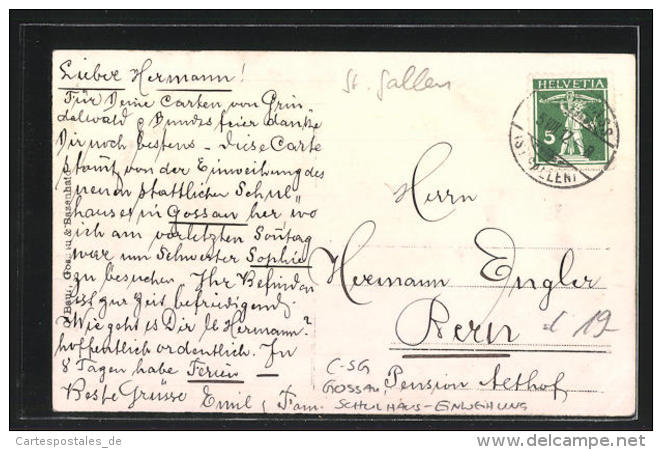 Lieber Hermann!
Für Deine Carten von Grin-
delwald & Bundesfeier danke
Dir noch bestens. Diese Carte
stamt von der Einweihung des
neuen stattlichen Schul-
hauses in Gossau her, wo
ich am vorletzten Sontag
war um Schwester Sophie
zu besuchen. Ihr Befinden
ist zur Zeit befriedigend.
Wie geht es Dir lb Hermann?
hoffentlich ordentlich. In
8 Tagen habe Ferien
Beste Grüsse Emil, Fam.
St. Gallen
HELVETIA
5
(ST. GALLEN)
Herrn
Hermann Engler
Bern
d 19-
Pension Althof
C-SG
GOSSAU,
SCHULHAUS-EINWEIHUNG
Gossau & Bazenheid
Cartespostales_de
www.delcampe.net